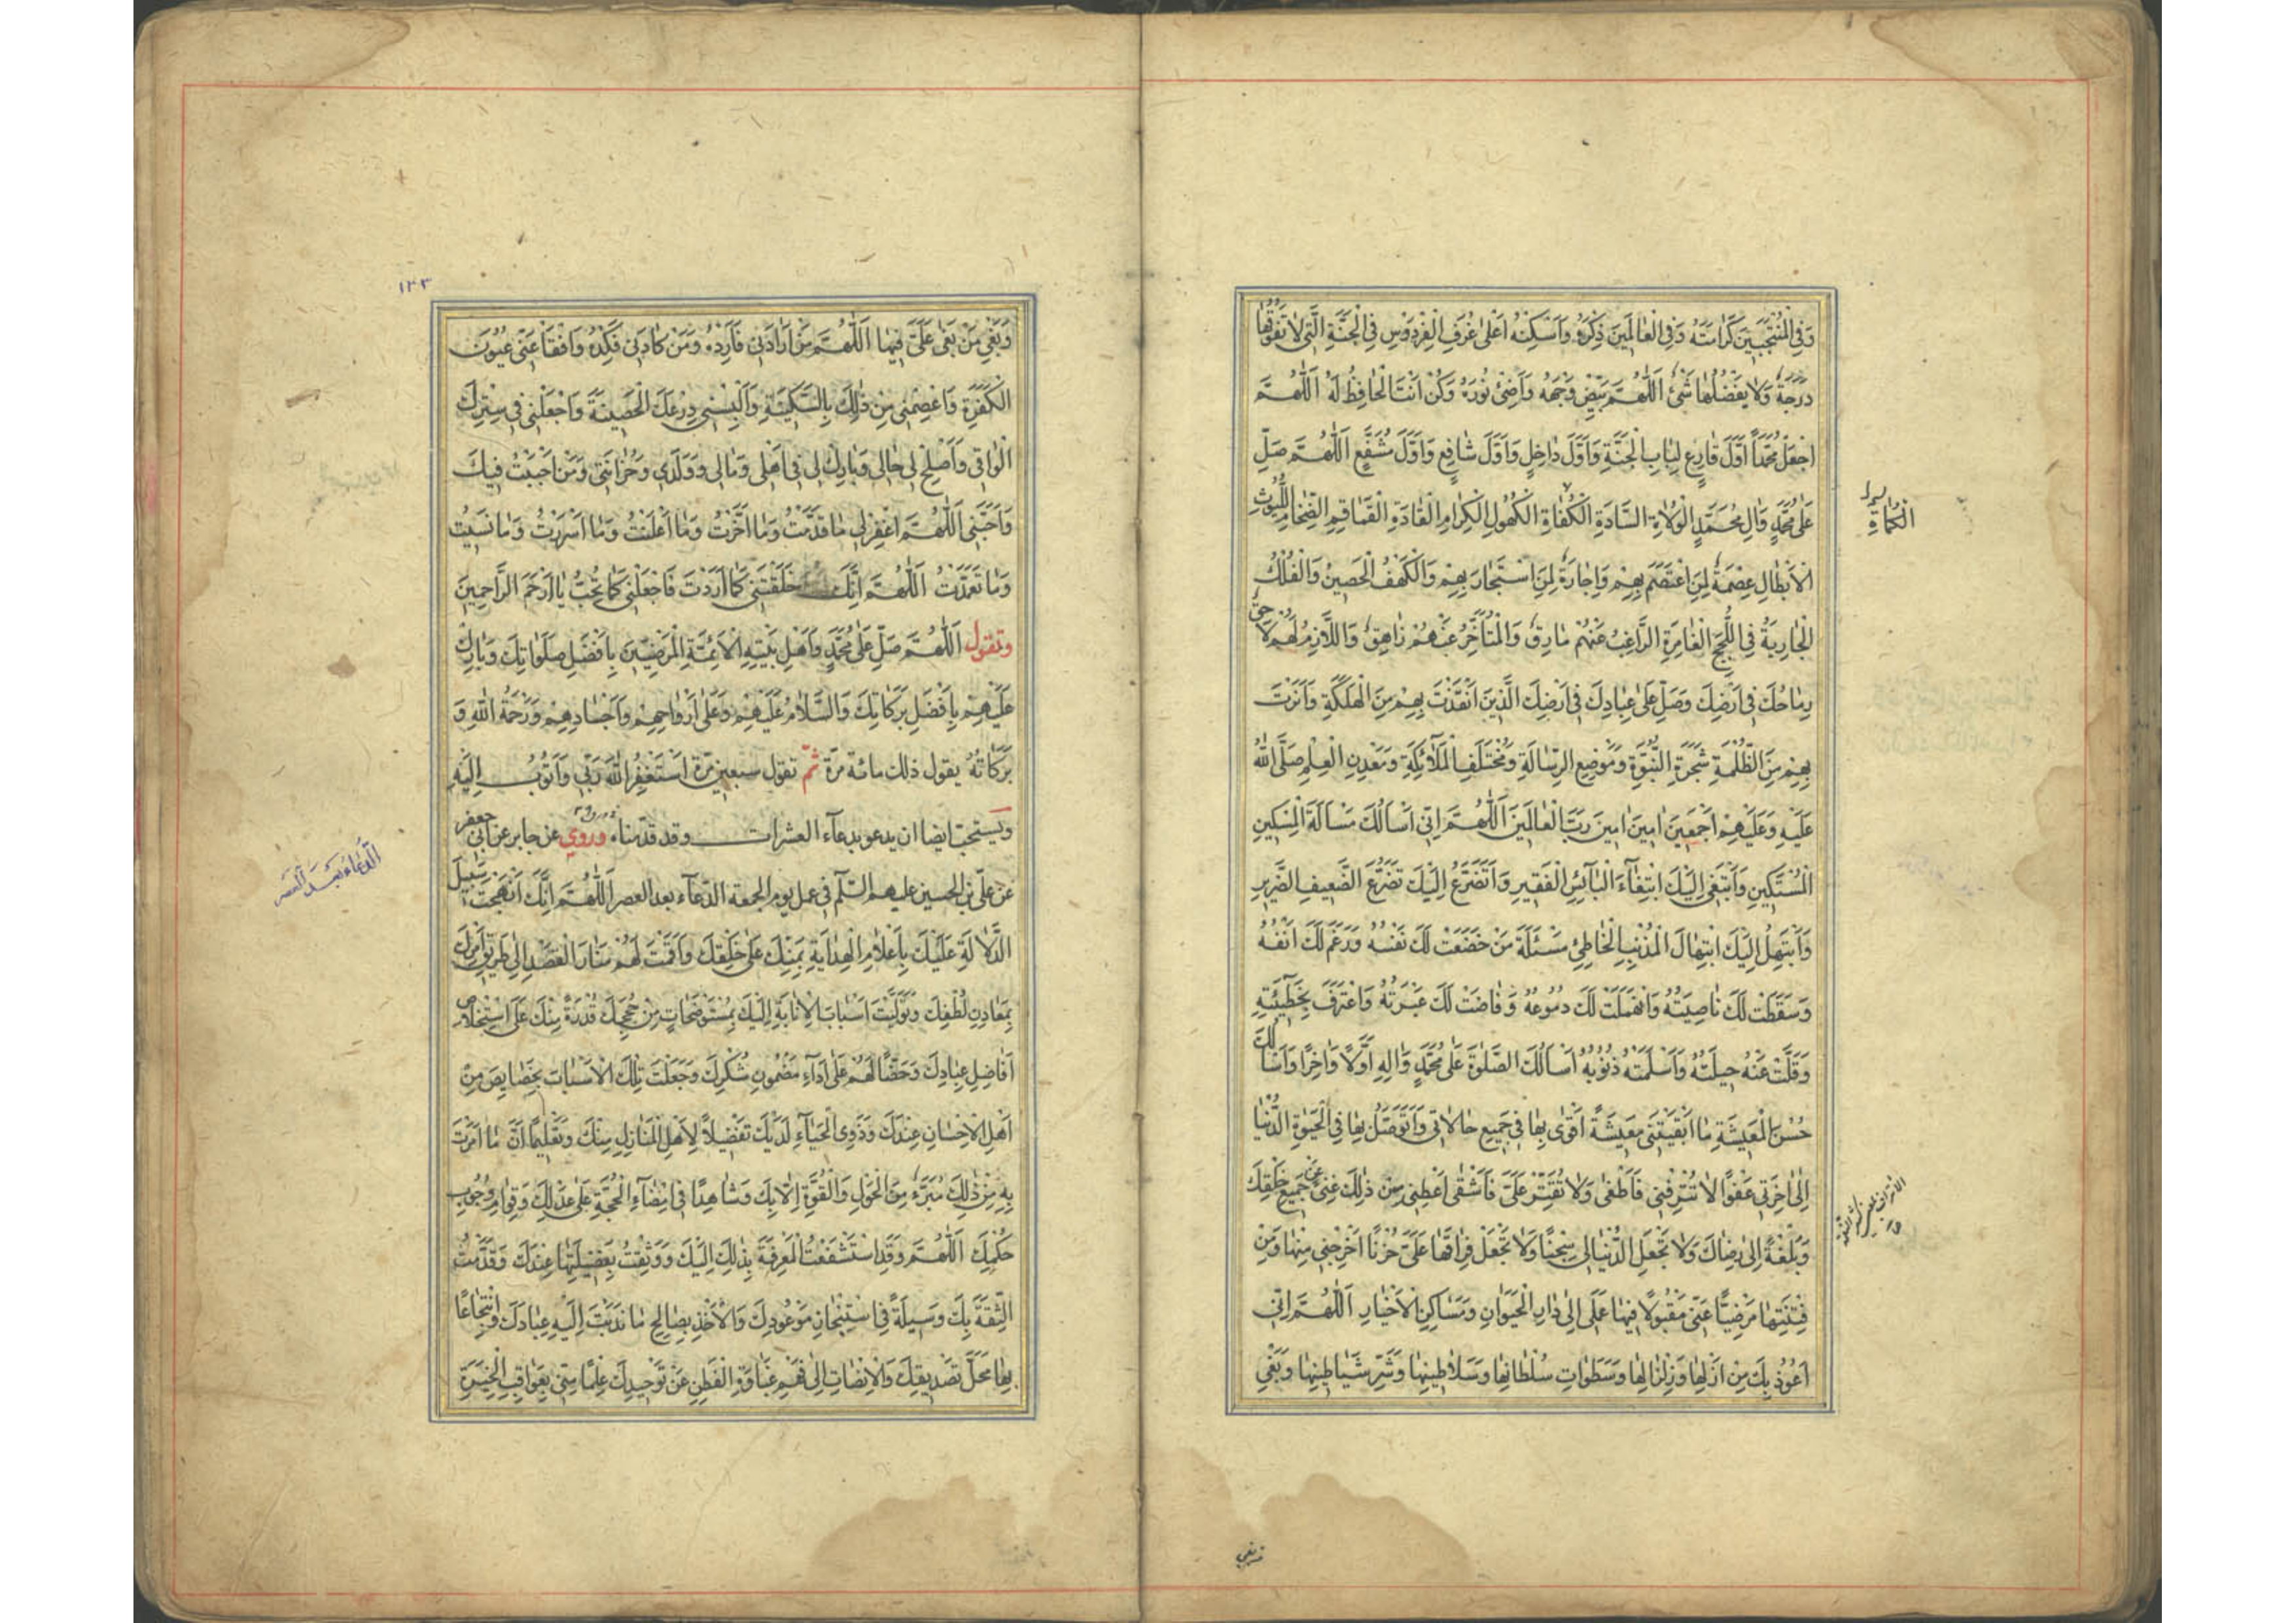 وَفِي الْمُنْتَجَبِينَ كَرَامَتَهُ وَفِي الْعَالَمِينَ ذِكْرَهُ وَاَسْكِنْهُ اَعْلٰى غُرَفِ الْفِرْدَوْسِ فِي الْجَنَّةِ الَّتِي لَا تَفُوقُهَا
دَرَجَةٌ وَلَا يَفْضُلُهَا شَيْءٌ اَللّٰهُمَّ بَيِّضْ وَجْهَهُ وَاَضِئْ نُورَهُ وَكُنْ اَنْتَ الْحَافِظُ لَهُ اَللّٰهُمَّ
اجْعَلْ مُحَمَّدًا اَوَّلَ قَارِعٍ لِبَابِ الْجَنَّةِ وَاَوَّلَ دَاخِلٍ وَاَوَّلَ شَافِعٍ وَاَوَّلَ مُشَفَّعٍ اَللّٰهُمَّ صَلِّ
عَلٰى مُحَمَّدٍ وَاٰلِ مُحَمَّدٍ الْوُلَاةِ السَّادَةِ الْكُفَاةِ الْكُهُولِ الْكِرَامِ الْقَادَةِ الْقَمَاقِمِ الضِّخَامِ اللُّيُوثِ
الْكُمَاةِ
الْاَبْطَالِ عِصْمَةٌ لِمَنِ اعْتَصَمَ بِهِمْ وَاِجَارَةٌ لِمَنِ اسْتَجَارَ بِهِمْ وَالْكَهْفُ الْحَصِينُ وَالْفُلْكُ
الْجَارِيَةُ فِي اللُّجَجِ الْغَامِرَةِ الرَّاغِبُ عَنْهُمْ مَارِقٌ وَالْمُتَاَخِّرُ عَنْهُمْ زَاهِقٌ وَاللَّازِمُ لَهُمْ لَاحِقٌ
رِمَاحُكَ فِي اَرْضِكَ وَصَلِّ عَلٰى عِبَادِكَ فِي اَرْضِكَ الَّذِينَ اَنْقَذْتَ بِهِمْ مِنَ الْهَلَكَةِ وَاَنَرْتَ
بِهِمْ مِنَ الظُّلْمَةِ شَجَرَةِ النُّبُوَّةِ وَمَوْضِعِ الرِّسَالَةِ وَمُخْتَلَفِ الْمَلَائِكَةِ وَمَعْدِنِ الْعِلْمِ صَلَّى اللّٰهُ
عَلَيْهِ وَعَلَيْهِمْ اَجْمَعِينَ اٰمِينَ اٰمِينَ رَبَّ الْعَالَمِينَ اَللّٰهُمَّ اِنِّي اَسْاَلُكَ مَسْاَلَةَ الْمِسْكِينِ
الْمُسْتَكِينِ وَاَبْتَغِي اِلَيْكَ ابْتِغَاءَ الْبَائِسِ الْفَقِيرِ وَاَتَضَرَّعُ اِلَيْكَ تَضَرُّعَ الضَّعِيفِ الضَّرِيرِ
وَاَبْتَهِلُ اِلَيْكَ ابْتِهَالَ الْمُذْنِبِ الْخَاطِئِ مَسْئَلَةَ مَنْ خَضَعَتْ لَكَ نَفْسُهُ وَرَغَمَ لَكَ اَنْفُهُ
وَسَقَطَتْ لَكَ نَاصِيَتُهُ وَانْهَمَلَتْ لَكَ دُمُوعُهُ وَفَاضَتْ لَكَ عَبْرَتُهُ وَاعْتَرَفَ بِخَطِيئَتِهِ
وَقَلَّتْ عَنْهُ حِيلَتُهُ وَاَسْلَمَتْهُ ذُنُوبُهُ اَسْاَلُكَ الصَّلٰوةَ عَلٰى مُحَمَّدٍ وَاٰلِهِ اَوَّلًا وَاٰخِرًا وَاَسْاَلُكَ
حُسْنَ الْمَعِيشَةِ مَا اَبْقَيْتَنِي مَعِيشَةً اَقْوٰى بِهَا فِي جَمِيعِ حَالَاتِي وَاَتَوَصَّلُ بِهَا فِي الْحَيٰوةِ الدُّنْيَا
اِلٰى اٰخِرَتِي عَفْوًا لَا تُتْرِفْنِي فَاَطْغٰى وَلَا تُقَتِّرْ عَلَيَّ فَاَشْقٰى اَعْطِنِي مِنْ ذٰلِكَ غِنًى عَنْ جَمِيعِ خَلْقِكَ
وَبُلْغَةً اِلٰى رِضَاكَ وَلَا تَجْعَلِ الدُّنْيَا لِي سِجْنًا وَلَا تَجْعَلْ فِرَاقَهَا عَلَيَّ حُزْنًا اَخْرِجْنِي مِنْهَا وَمِنْ
فِتْنَتِهَا مَرْضِيًّا عَنِّي مَقْبُولًا فِيهَا عَمَلِي اِلٰى دَارِ الْحَيَوَانِ وَمَسَاكِنِ الْاَخْيَارِ اَللّٰهُمَّ اِنِّي
اَعُوذُ بِكَ مِنْ اَزْلِهَا وَزِلْزَالِهَا وَسَطَوَاتِ سُلْطَانِهَا وَسَلَاطِينِهَا وَشَرِّ شَيَاطِينِهَا وَبَغْيِ
١٣٣
وَبَغْيِ مَنْ بَغٰى عَلَيَّ فِيهَا اَللّٰهُمَّ مَنْ اَرَادَنِي فَاَرِدْهُ وَمَنْ كَادَنِي فَكِدْهُ وَافْقَاْ عَنِّي عُيُونَ
الْكَفَرَةِ وَاعْصِمْنِي مِنْ ذٰلِكَ بِالسَّكِينَةِ وَاَلْبِسْنِي دِرْعَكَ الْحَصِينَةَ وَاجْعَلْنِي فِي سِتْرِكَ
الْوَاقِي وَاَصْلِحْ لِي حَالِي وَبَارِكْ لِي فِي اَهْلِي وَمَالِي وَوَلَدِي وَحُزَانَتِي وَمَنْ اَحْبَبْتُ فِيكَ
وَاَحَبَّنِي اَللّٰهُمَّ اغْفِرْ لِي مَا قَدَّمْتُ وَمَا اَخَّرْتُ وَمَا اَعْلَنْتُ وَمَا اَسْرَرْتُ وَمَا نَسِيتُ
وَمَا تَعَمَّدْتُ اَللّٰهُمَّ اِنَّكَ خَلَقْتَنِي كَمَا اَرَدْتَ فَاجْعَلْنِي كَمَا تُحِبُّ يَا اَرْحَمَ الرَّاحِمِينَ
وتقول اَللّٰهُمَّ صَلِّ عَلٰى مُحَمَّدٍ وَاَهْلِ بَيْتِهِ الْاَئِمَّةِ الْمَرْضِيِّينَ بِاَفْضَلِ صَلَوَاتِكَ وَبَارِكْ
عَلَيْهِمْ بِاَفْضَلِ بَرَكَاتِكَ وَالسَّلَامُ عَلَيْهِمْ وَعَلٰى اَرْوَاحِهِمْ وَاَجْسَادِهِمْ وَرَحْمَةُ اللّٰهِ وَ
بَرَكَاتُهُ يقول ذلك مائة مرّة ثمّ تقول سبعين مرّة اَسْتَغْفِرُ اللّٰهَ رَبِّي وَاَتُوبُ اِلَيْهِ
ويستحبّ ايضا ان يدعو بدعآء العشرات وقد قدّمناه وروي عن جابر عن ابي جعفر
عن علىّ بن الحسين عليهم السّلام في عمل يوم الجمعة الدّعآء بعد العصر اَللّٰهُمَّ اِنَّكَ اَنْهَجْتَ سَبِيلَ
الدّعاء بعد العصر
الدَّلَالَةِ عَلَيْكَ بِاَعْلَامِ الْهِدَايَةِ بِمَنِّكَ عَلٰى خَلْقِكَ وَاَقَمْتَ لَهُمْ مَنَارَ الْقَصْدِ اِلٰى طَرِيقِ اَمْرِكَ
بِمَعَادِنِ لُطْفِكَ وَتَوَلَّيْتَ اَسْبَابَ الْاِنَابَةِ اِلَيْكَ بِمُسْتَوْضَحَاتٍ مِنْ حُجَجِكَ قُدْرَةً مِنْكَ عَلَى اسْتِخْلَاصِ
اَفَاضِلِ عِبَادِكَ وَحَضًّا لَهُمْ عَلٰى اَدَاءِ مَضْمُونِ شُكْرِكَ وَجَعَلْتَ تِلْكَ الْاَسْبَابَ بِخَصَايِصَ مِنْ
اَهْلِ الْاِحْسَانِ عِنْدَكَ وَذَوِي الْحِبَاءِ لَدَيْكَ تَفْضِيلًا لِاَهْلِ الْمَنَازِلِ مِنْكَ وَتَعْلِيمًا اَنَّ مَا اَمَرْتَ
بِهِ مِنْ ذٰلِكَ مُبَرَّءٌ مِنَ الْحَوْلِ وَالْقُوَّةِ اِلَّا بِكَ وَشَاهِدًا فِي اِمْضَاءِ الْحُجَّةِ عَلٰى عَدْلِكَ وَقِوَامِ وُجُوبِ
حُكْمِكَ اَللّٰهُمَّ وَقَدِ اسْتَشْفَعْتُ الْمَعْرِفَةَ بِذٰلِكَ اِلَيْكَ وَوَثِقْتُ بِفَضِيلَتِهَا عِنْدَكَ وَقَدَّمْتُ
الثِّقَةَ بِكَ وَسِيلَةً فِي اسْتِنْجَازِ مَوْعُودِكَ وَالْاَخْذِ بِصَالِحِ مَا نَدَبْتَ اِلَيْهِ عِبَادَكَ وَانْتِجَاعًا
بِهَا مَحَلَّ تَصْدِيقِكَ وَالْاِنْصَاتِ اِلٰى فَهْمِ غَبَاوَةِ الْفَطِنِ عَنْ تَوْحِيدِكَ عِلْمًا مِنِّي بِعَوَاقِبِ الْخِيَرَةِ